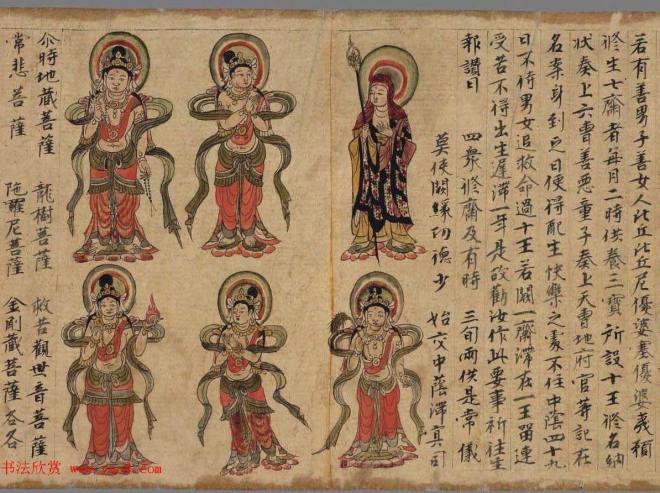 若有善男子善女人比丘比丘尼優婆塞優婆夷預
修生七齋者每月二時供養三寶所設十王修名納
状奏上六曹善惡童子奏上天曹地府官等記在
名案身到之日便得配生快樂之處不住中陰四十九
日不待男女追救命過十王若闕一齋滯在一王留連
受苦不得出生遲滯一年是故勸汝作此要事祈往生
報讚曰
四衆修齋及有時 三旬兩供是常儀
莫使闕緣功德少 始交中陰滯冥司
尒時地藏菩薩 龍樹菩薩 救苦觀世音菩薩
常悲菩薩 陁羅尼菩薩 金剛藏菩薩各各
书法欣赏 www.yac8.com